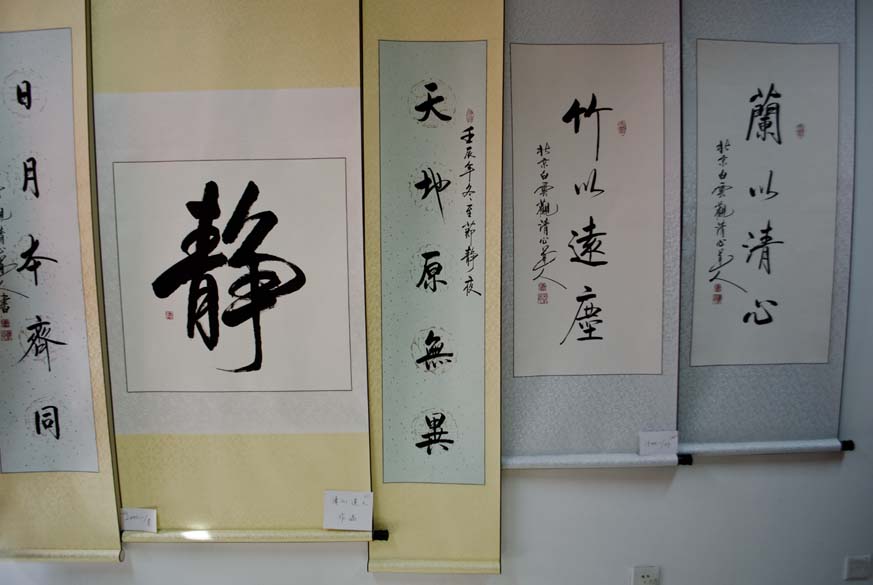 蘭以清心
北京白雲觀清心人
竹以遠塵
北京白雲觀清心人
壬辰年冬至節静夜
天地原無異
静
日月本齊同
觀清心人書
作品